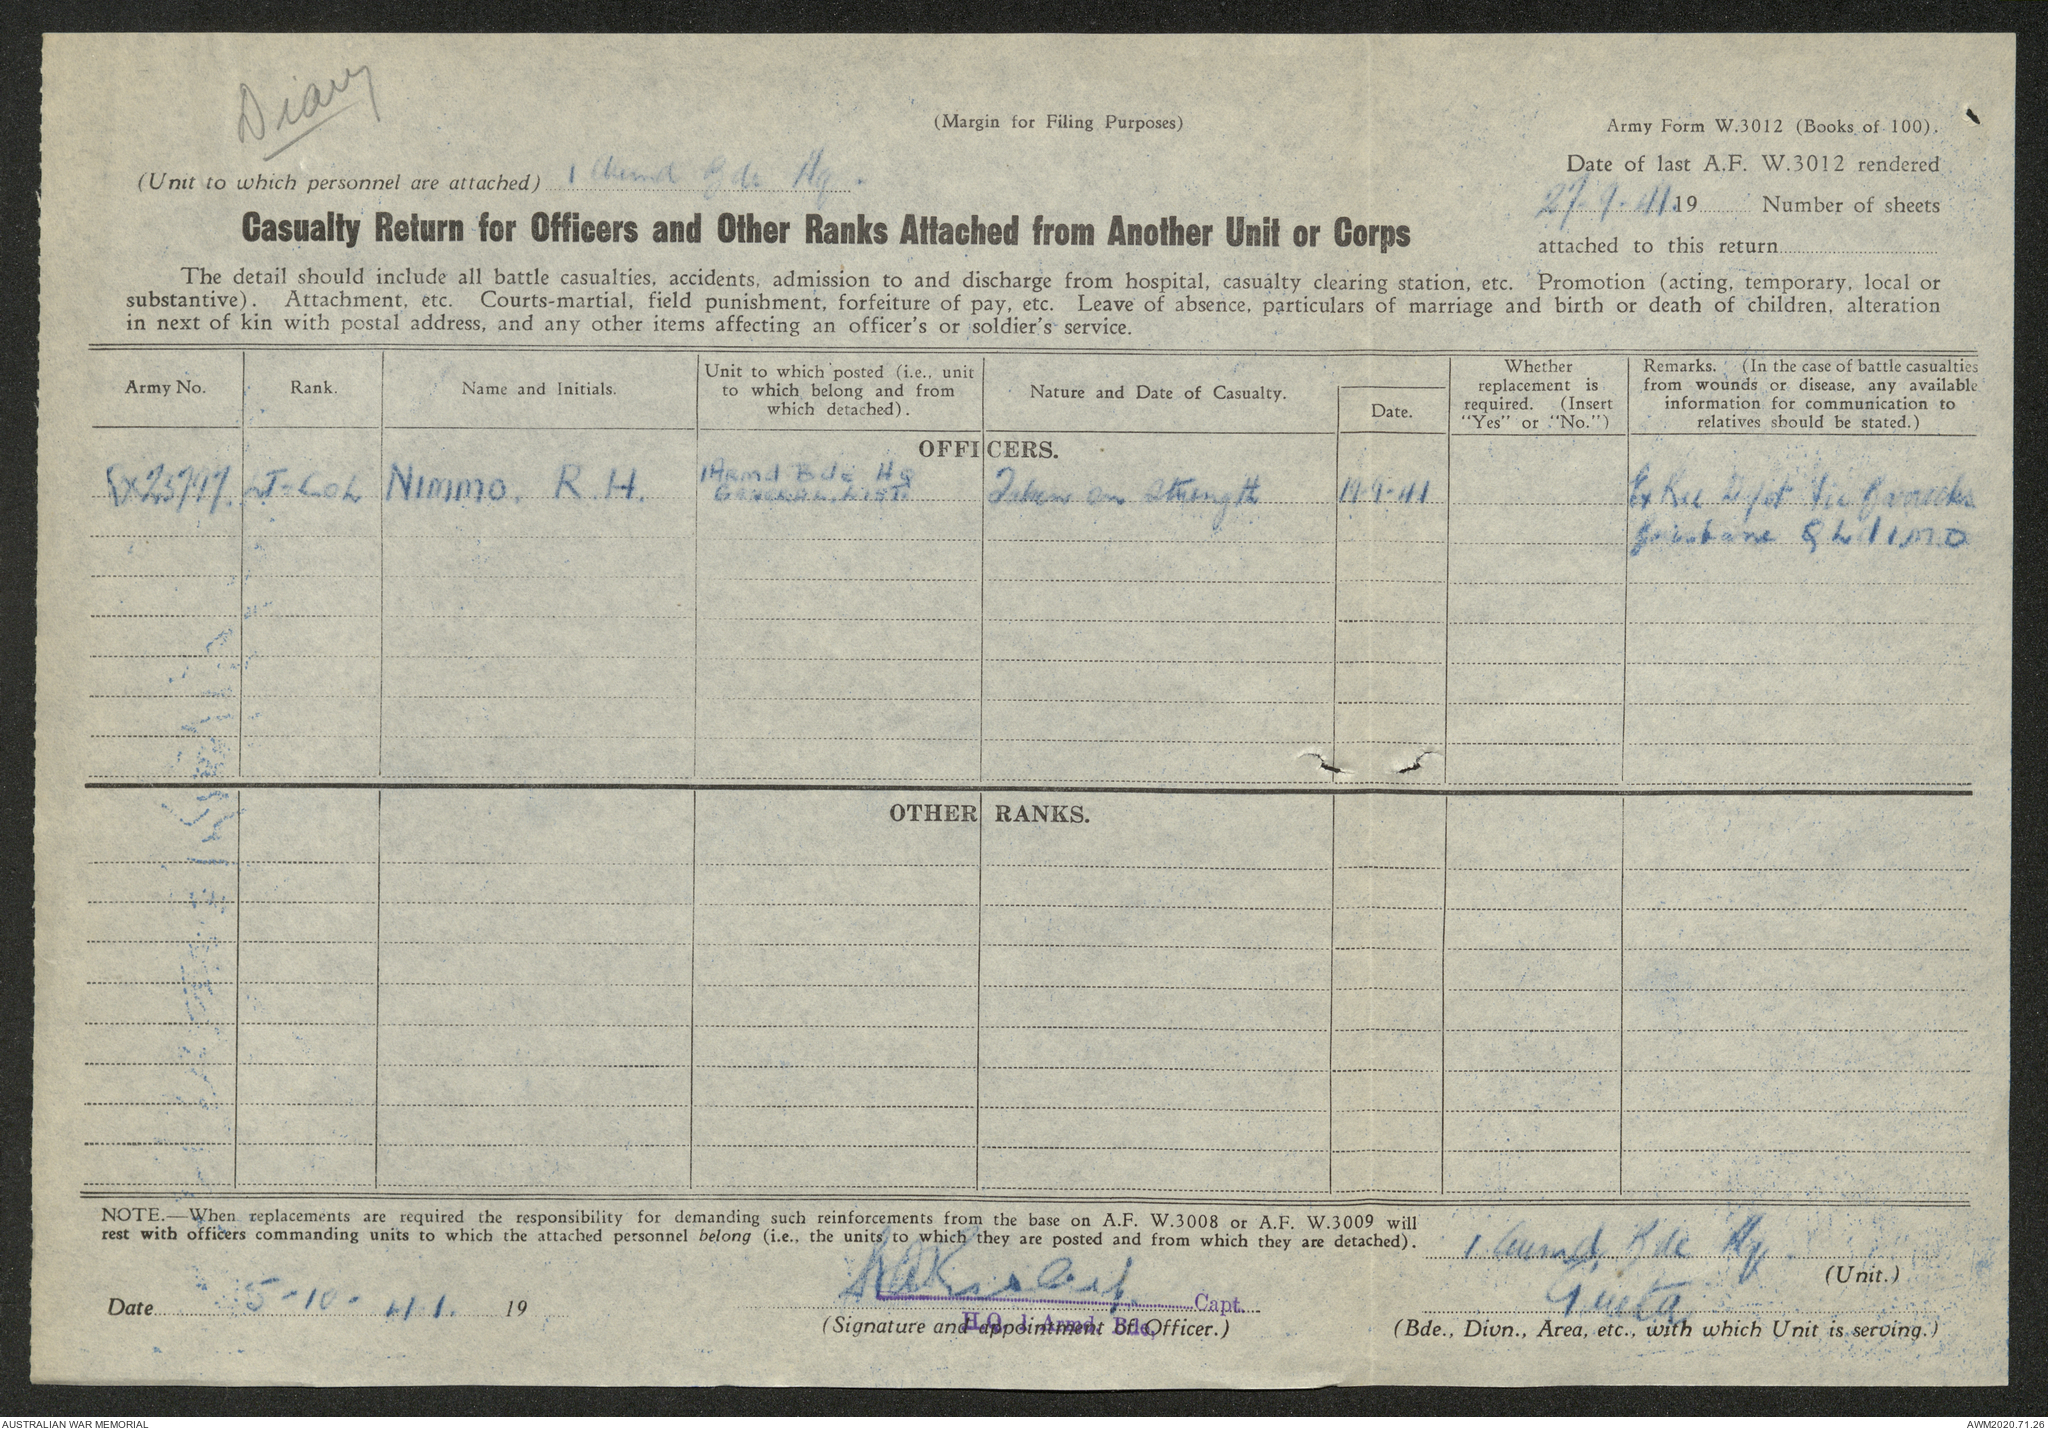 Diary
(Margin for Filing Purposes)
Army Form W.3012 (Books of 100).
Date of last A.F. W.3012 rendered
(Unit to which personnel are attached) 1 Armd Bde Hq.
27-9-41 19 Number of sheets
Casualty Return for Officers and Other Ranks Attached from Another Unit or Corps
attached to this return
The detail should include all battle casualties, accidents, admission to and discharge from hospital, casualty clearing station, etc. Promotion (acting, temporary, local or
substantive). Attachment, etc. Courts-martial, field punishment, forfeiture of pay, etc. Leave of absence, particulars of marriage and birth or death of children, alteration
in next of kin with postal address, and any other items affecting an officer's or soldier's service.
Army No.
Rank.
Name and Initials.
Unit to which posted (i.e., unit
to which belong and from
which detached).
Nature and Date of Casualty.
Date.
Whether
replacement is
required. (Insert
"Yes" or "No.")
Remarks. (In the case of battle casualties
from wounds or disease, any available
information for communication to
relatives should be stated.)
OFFICERS.
LT-COL
NIMMO. R.H.
1 ARMD Bde HQ
GENERAL LIST.
Taken on Strength
19-9-41
Ex Rec Depot Vic Barracks
Brisbane QLd 1.M.D
OTHER RANKS.
NOTE.—When replacements are required the responsibility for demanding such reinforcements from the base on A.F. W.3008 or A.F. W.3009 will
rest with officers commanding units to which the attached personnel belong (i.e., the units to which they are posted and from which they are detached).
1 Armd, Bde Hq.
(Unit.)
Date 5-10-41. 19
Capt.
H.Q. 1 Armd. Bde.
(Signature and appointment of Officer.)
Greta,
(Bde., Divn., Area, etc., with which Unit is serving.)
AUSTRALIAN WAR MEMORIAL
AWM2020.71.26